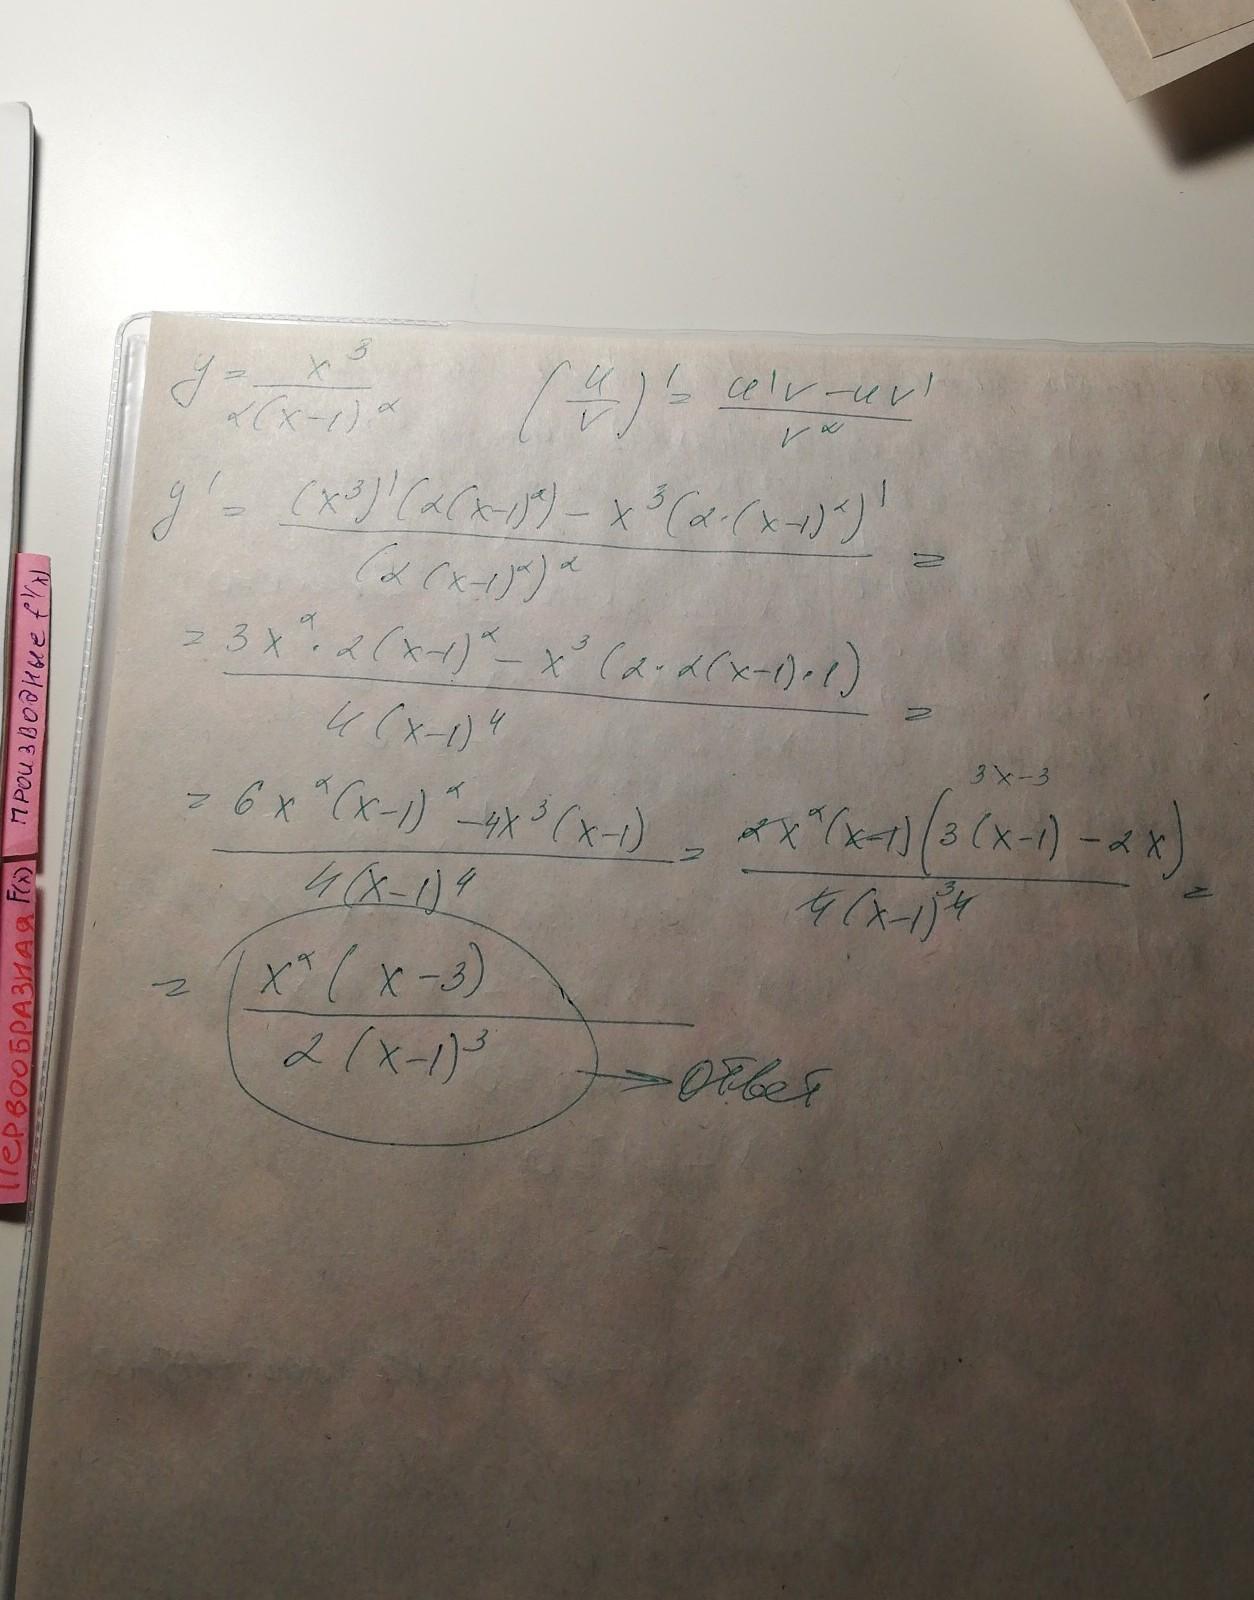 y = x³ / 2(x-1)² (u/v)' = u'v - uv' / v²
y' = (x³)'(2(x-1)²) - x³(2·(x-1)²)' / (2(x-1)²)² =
= 3x²·2(x-1)² - x³(2·2(x-1)·1) / 4(x-1)⁴ =
3x-3
= 6x²(x-1)² - 4x³(x-1) / 4(x-1)⁴ = 2x²(x-1)(3(x-1) - 2x) / 4(x-1)³ ⁴ =
= x²(x-3) / 2(x-1)³ → ответ
ПРОИЗВОДНЫЕ f'(x)
ПЕРВООБРАЗНАЯ F(x)